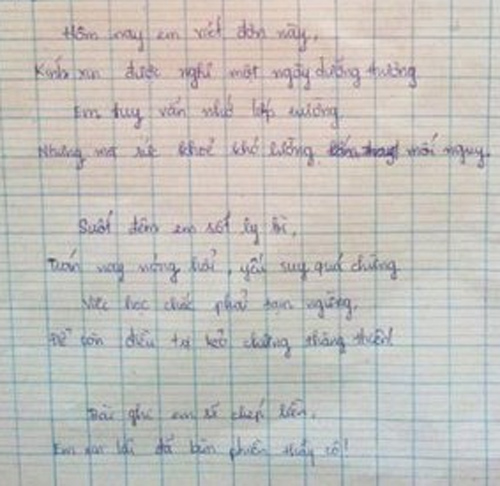 Hôm nay em viết đơn này,
Kính xin được nghỉ một ngày dưỡng thương
Em tuy vẫn nhớ lớp trường
Nhưng mà sức khoẻ khó lường, mối nguy.
Suốt đêm em sốt ly bì,
Trán nay nóng hổi, yếu suy quá chừng
Việc học chắc phải tạm ngừng,
Để còn điều trị kẻo chừng thăng thiên!
Bài ghi em sẽ chép liền,
Em xin lỗi đã làm phiền thầy cô!